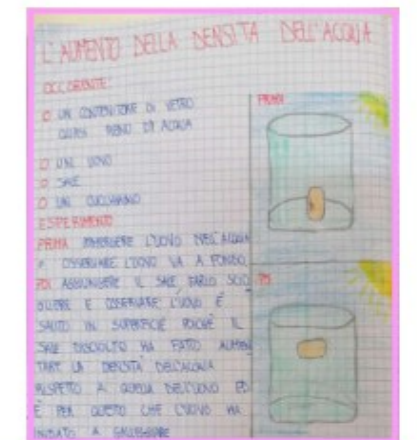 L'AUMENTO DELLA DENSITÀ DELL'ACQUA
OCCORENTE:
UN CONTENITORE DI VETRO
QUASI PIENO DI ACQUA
UN UOVO
SALE
UN CUCCHIAINO
ESPERIMENTO
PRIMA IMMERGERE L'UOVO NELL'ACQUA
E OSSERVARE L'UOVO VA A FONDO.
POI AGGIUNGERE IL SALE, FARLO SCIO
GLIERE E OSSERVARE L'UOVO È
SALITO IN SUPERFICIE POICHÈ IL
SALE DISCIOLTO HA FATTO AUMEN
TARE LA DENSITÀ DELL'ACQUA
RISPETTO A QUELLA DELL'UOVO ED
È PER QUESTO CHE L'UOVO HA
INIZIATO A GALLEGGIARE
PRIMA
POI